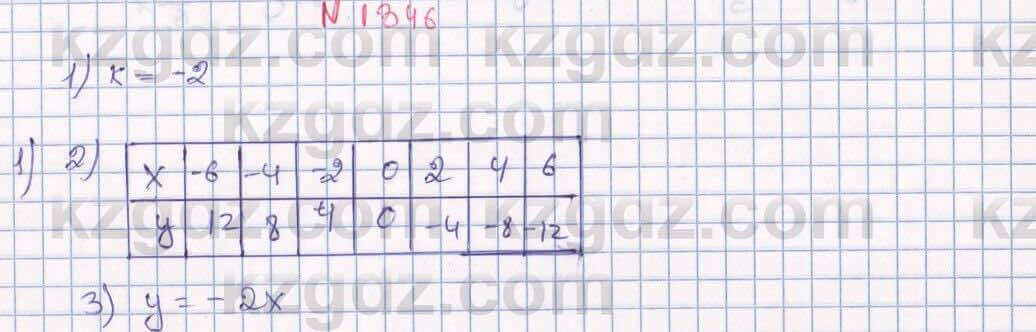 N 1346
kzgdz.com kzgdz.com kz
1) k = -2
kzgdz.com
1) 2) x -6 -4 -2 0 2 4 6
kzgdz.com kzgdz.com kz
y 12 8 4 0 -4 -8 -12
3) y = -2x
kzgdz.com